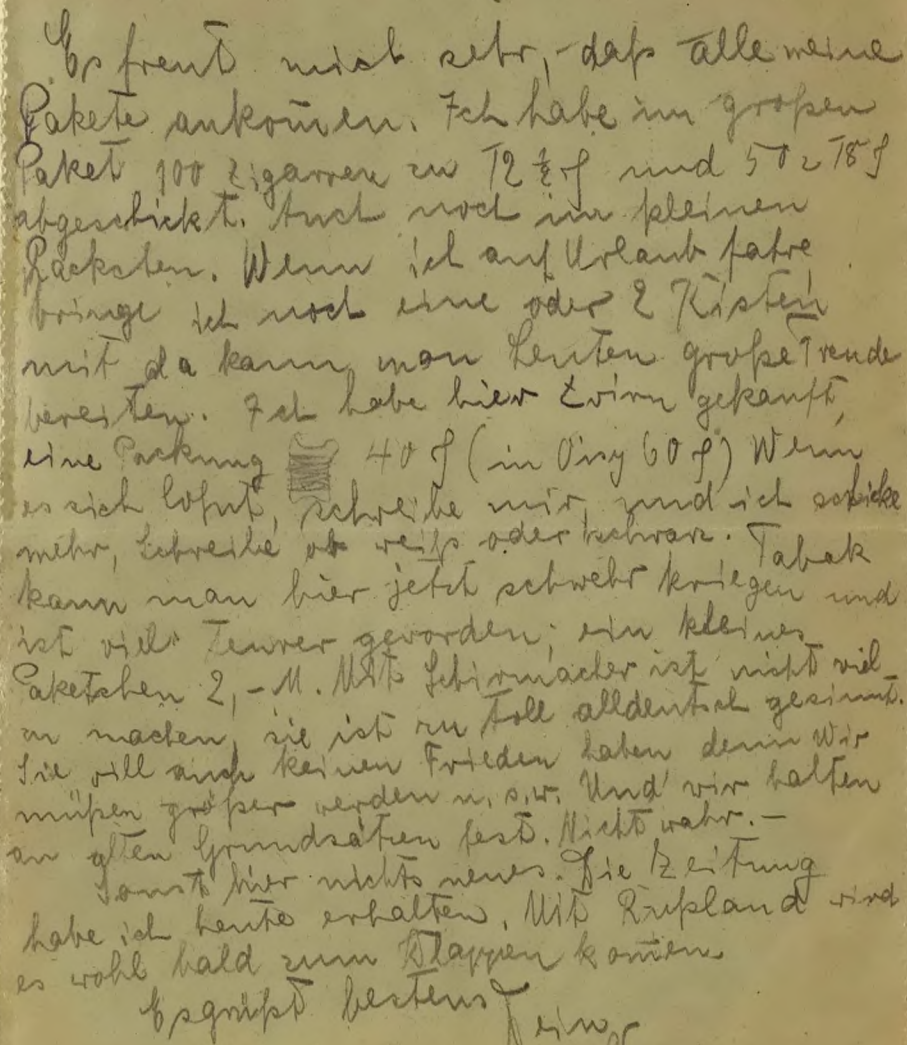 Es freut mich sehr, - daß alle meine
Pakete ankom̄en. Ich habe im großen
Paket 100 Zigarren zu 12 ½ ₰ und 50 z 18 ₰
abgeschickt. Auch noch im kleinen
Päckchen. Wenn ich auf Urlaub fahre
bringe ich noch eine oder 2 Kisten
mit da kann man Leuten große Freude
bereiten. Ich habe hier Zwirn gekauft,
eine Packung 40 ₰ (in Oisy 60 ₰) Wenn
es sich lohnt, schreibe mir, und ich schicke
mehr, Schreibe ob weiß oder schwarz. Tabak
kann man hier jetzt schwehr kriegen und
ist viel teurer geworden; ein kleines
Paketchen 2,- M. Mit Schirmacher ist nicht viel
zu machen, sie ist zu toll alldeutsch gesinnt.
Sie will auch keinen Frieden haben denn Wir
müßen größer werden u. s. w. Und wir halten
an alten Grundsätzen fest. Nicht wahr. -
Sonst hier nichts neues. Die Zeitung
habe ich heute erhalten. Mit Rußland wird
es wohl bald zum Klappen kom̄en.
Es grüßt bestens Dein